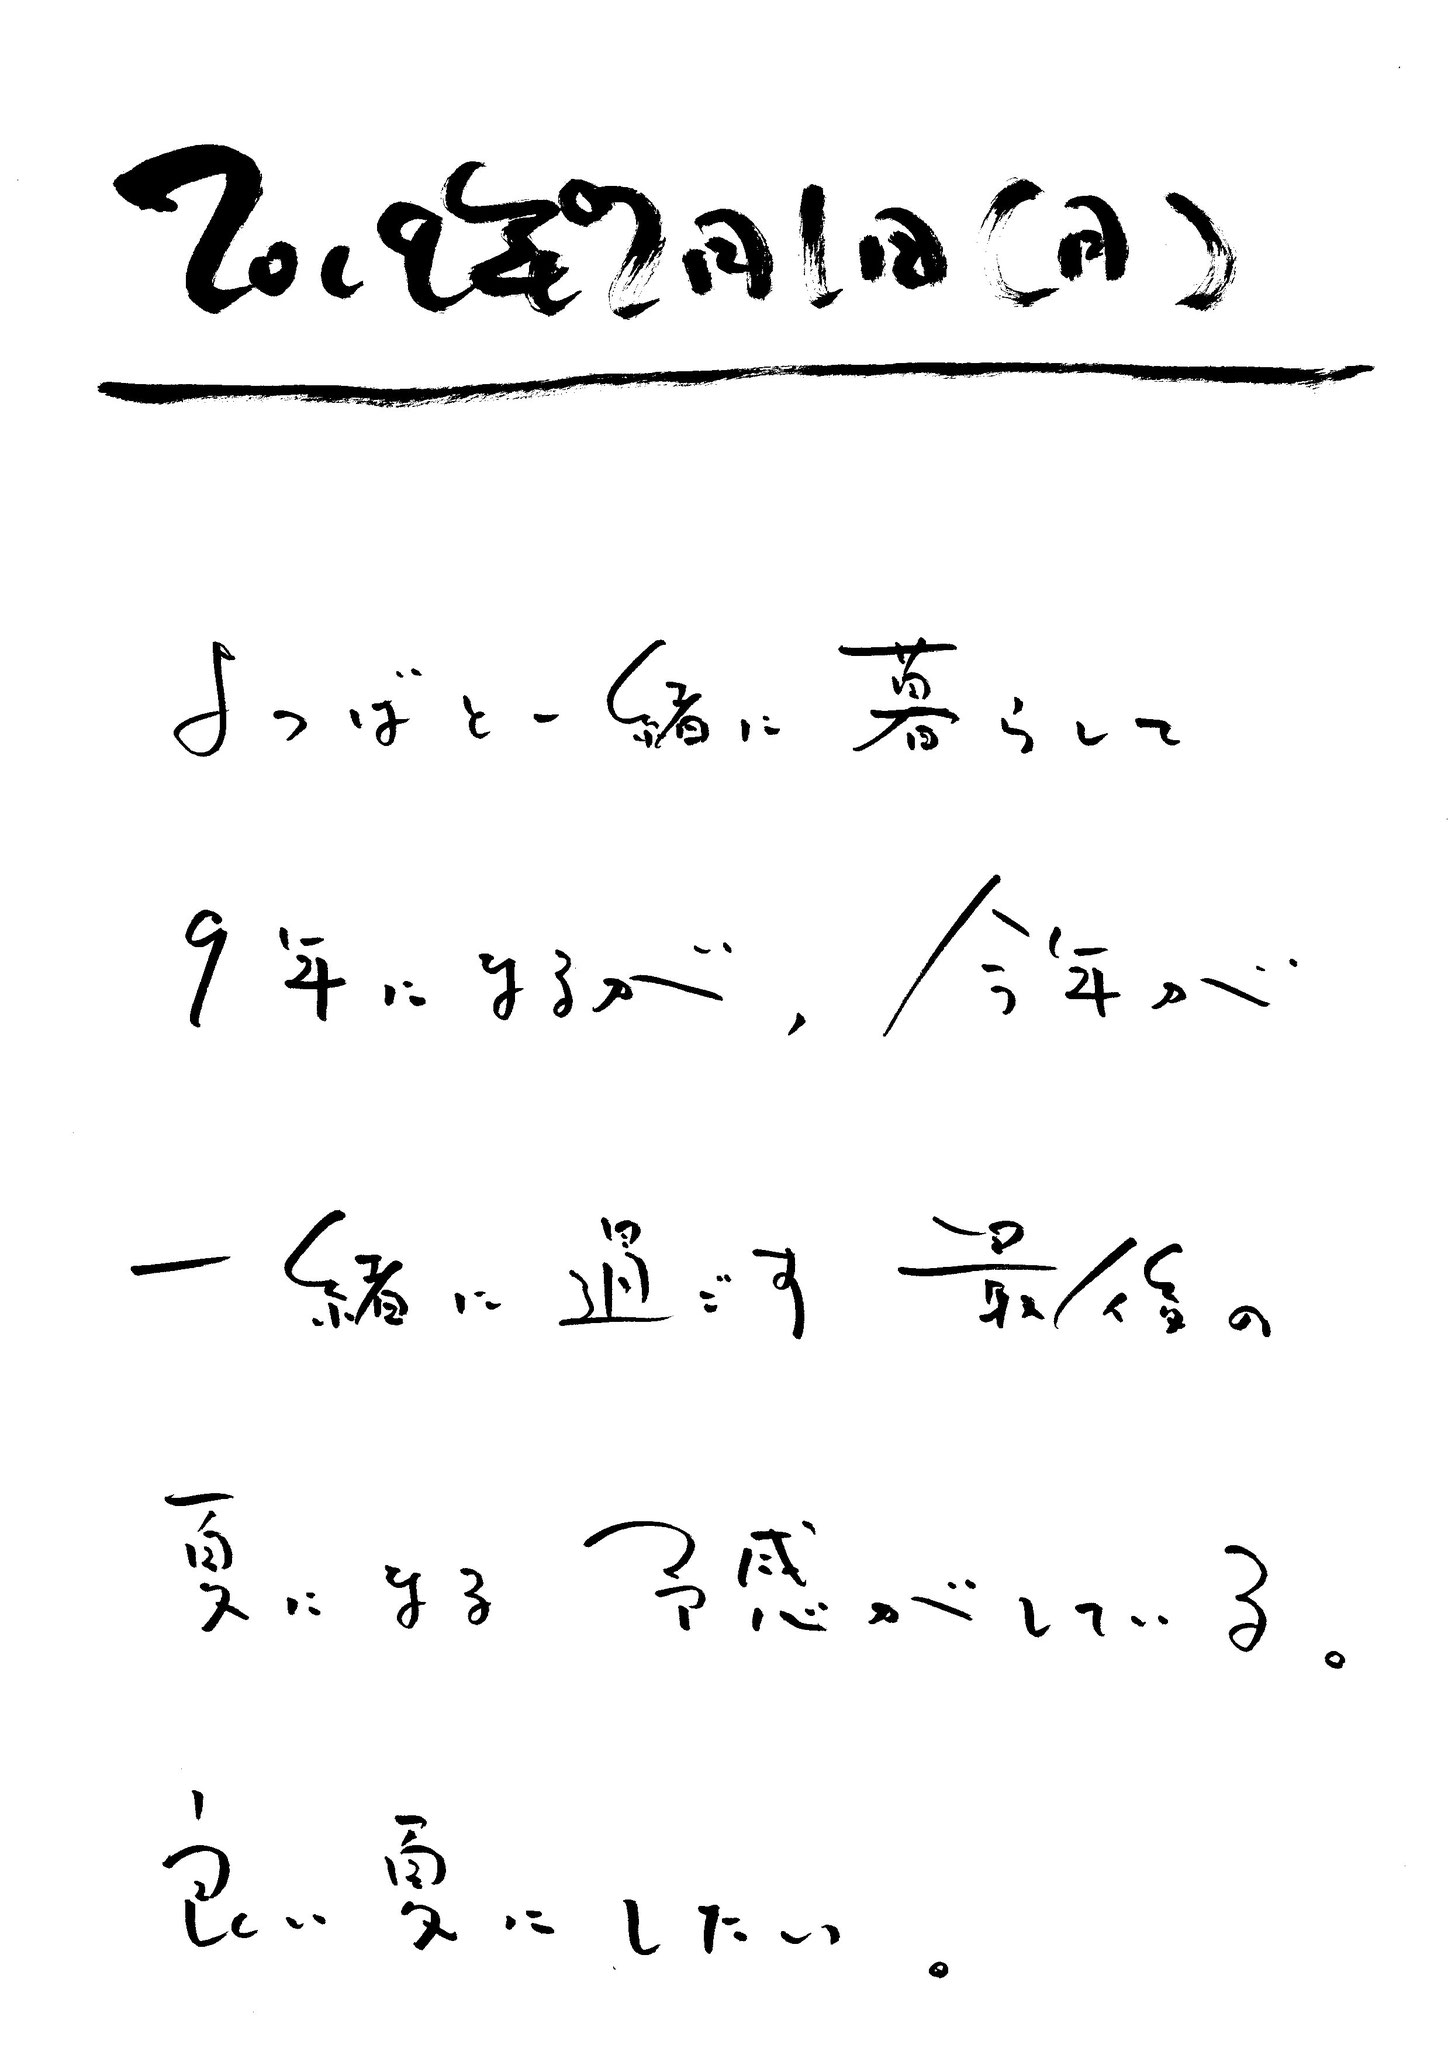 2019年7月1日(月)
よつばと一緒に暮らして
9年になるが、今年が
一緒に過ごす最後の
夏になる予感がしている。
良い夏にしたい。